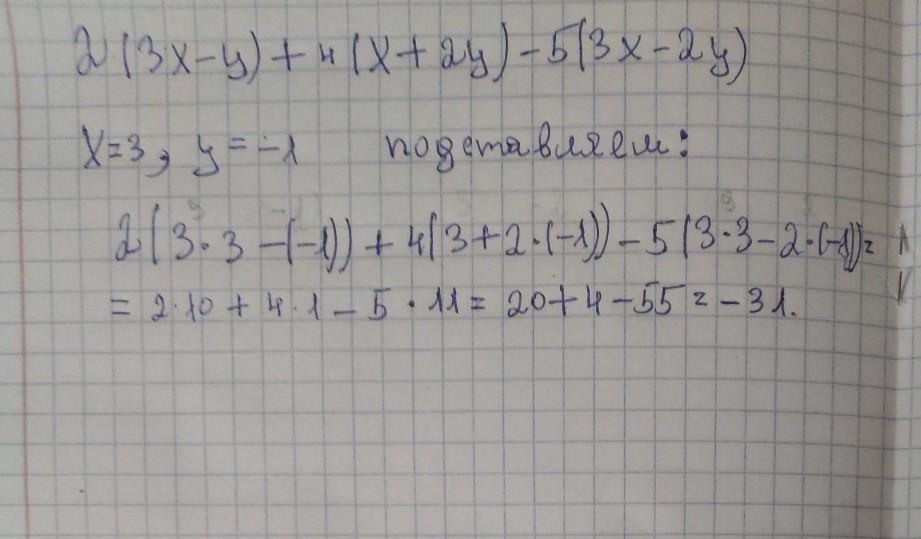 2(3x-y)+4(x+2y)-5(3x-2y)
x=3, y=-1 подставляем:
2(3·3-(-1))+4(3+2·(-1))-5(3·3-2·(-1))=
=2·10+4·1-5·11=20+4-55=-31.